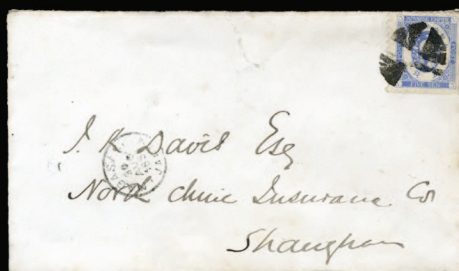 FIVE SEN
J. K. David Esq
North China Insurance Co
Shanghai